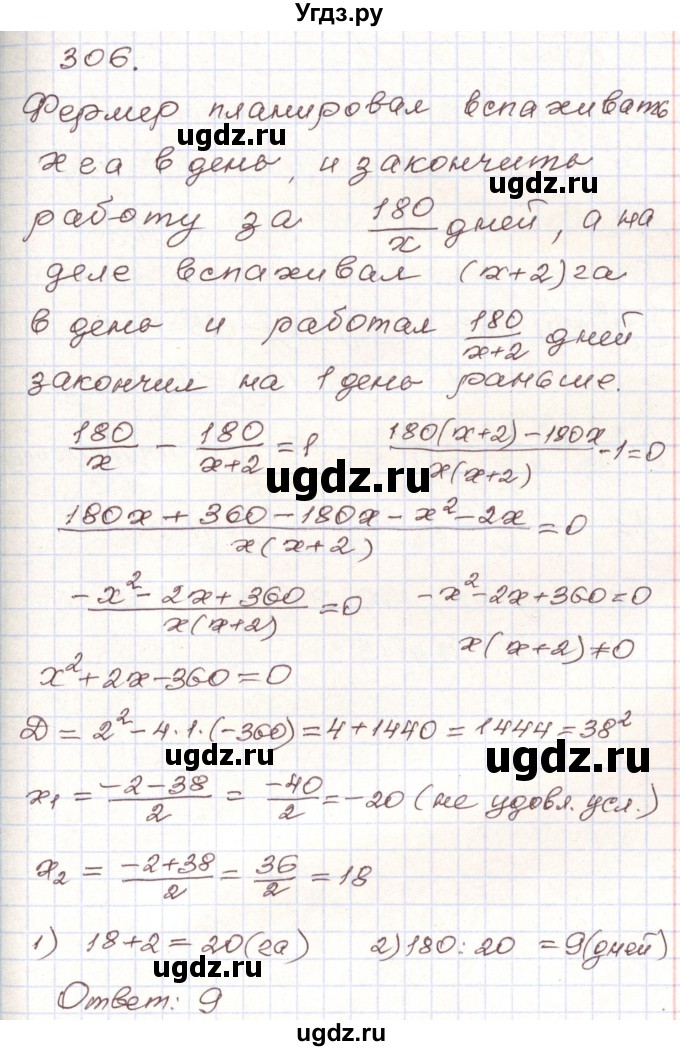 Угдз.ру
306.
Фермер планировал вспахивать
ugdz.ru
x га в день, и закончить
ugdz.ru
работу за 180/x дней, а на
деле вспахивал (x+2) га
в день и работал 180/(x+2) дней
закончил на 1 день раньше.
180/x - 180/(x+2) = 1   (180(x+2)-180x)/(x(x+2)) - 1 = 0
ugdz.ru
(180x + 360 - 180x - x² - 2x)/(x(x+2)) = 0
(-x² - 2x + 360)/(x(x+2)) = 0   -x² - 2x + 360 = 0
ugdz.ru
x(x+2) ≠ 0
x² + 2x - 360 = 0
Д = 2² - 4·1·(-360) = 4 + 1440 = 1444 = 38²
ugdz.ru
x₁ = (-2-38)/2 = -40/2 = -20 (не удовл. усл.)
ugdz.ru
x₂ = (-2+38)/2 = 36/2 = 18
1) 18+2 = 20 (га)   2) 180 : 20 = 9 (дней)
ugdz.ru
Ответ: 9
ugdz.ru
ugdz.ru